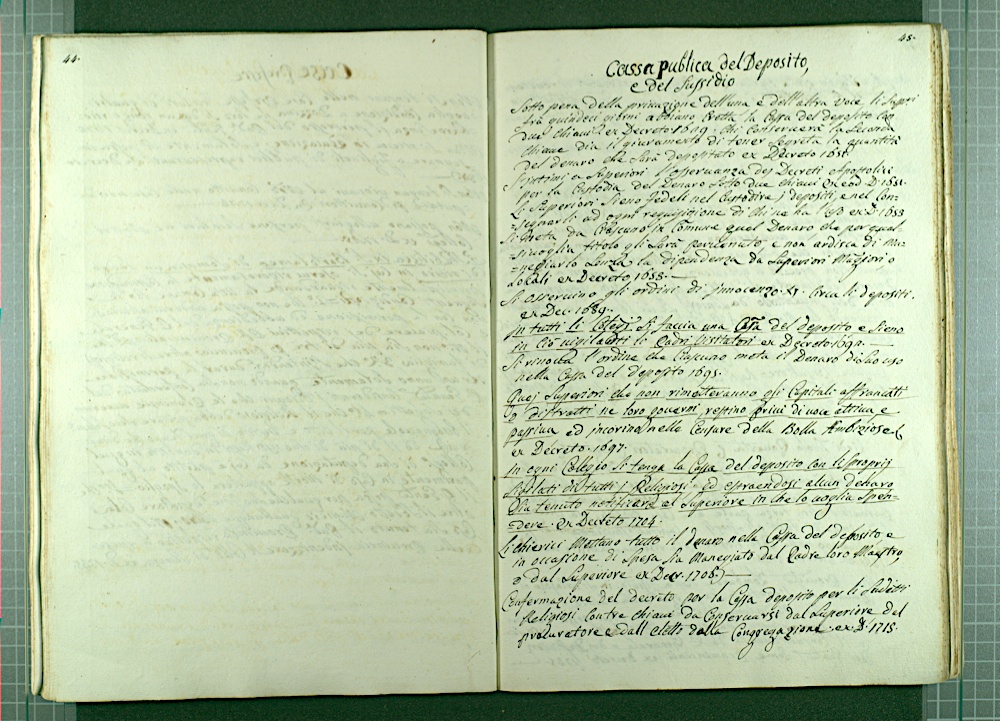 44.
45.
Cassa publica del Deposito,
e del Sussidio
Sotto pena della privazione dell'una e dell'altra voce li Superi
frà quindeci giorni abbiano eretta la Cassa del deposito con
due chiavi ex Decreto 1649. Chi conserverà la seconda
chiave dia il giuramento di tener segreta la quantità
del denaro che sarà depositato ex Decreto 1651.
S'intimi a Superiori l'osservanza de Decreti Apostolici
per la Custodia del Denaro sotto due chiavi ex eod. D. 1651.
Li Superiori sieno fedeli nel custodire i depositi, e nel con-
=segnarli ad ogni requisizione di chi ne ha l'uso ex D. 1653
Si metta da Ciascuno in Comune quel Denaro che per qual-
=sivoglia titolo gli sarà pervenuto, e non ardisca di ma-
=neggiarlo senza la dipendenza da Superiori Maggiori o
Locali ex Decreto 1658.—
Si osservino gli ordini di Innocenzo XI. circa li depositi.
ex Dec. 1689.
In tutti li Colegi si faccia una Cassa del deposito e sieno
in ciò vigilanti li Padri Visitatori ex Decreto 1691.—
Si rinova l'ordine che Ciascuno metta il Denaro di suo uso
nella Cassa del deposito 1695.
Quei Superiori che non rimetteranno gli Capitali affrancati
o distratti ne loro governi, restino privi di voce attiva e
passiva ed incorino nelle Censure della Bolla Ambitiosæ
ex Decreto. 1697.
In ogni Colegio si tenga la Cassa del deposito con li proprij
di tutti i Religiosi ed estraendosi alcun denaro
sia tenuto notificare al Superiore in che lo voglia spen-
=dere. ex Decreto 1704.
Li Chierici Mettano tutto il denaro nella Cassa del deposito e
in occasione di spesa sia Maneggiato dal Padre loro Maestro,
o dal Superiore ex Decr. 1708.—
Confermazione del decreto per la Cassa deposito per li sudetti
Religiosi con tre chiavi da Conservarsi dal Superiore del
procuratore e dall'eletto dalla Congregazione. ex D. 1715.